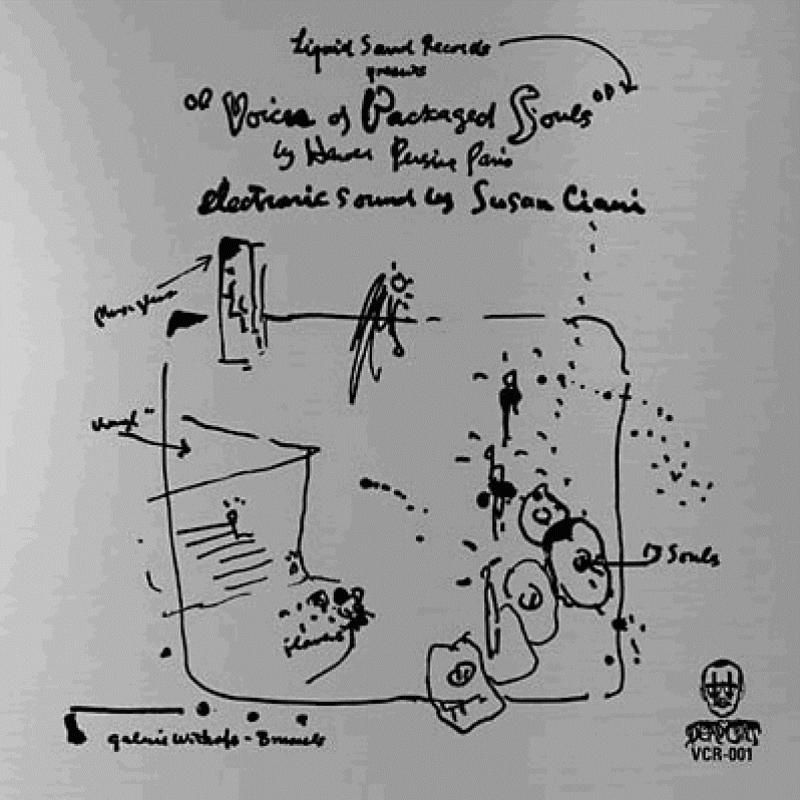 Liquid Sound Records
presents
"Voices of Packaged Souls"
by Persine Paris
electronic sound by Susan Ciani
Souls
galerie Withofs - Brussels
DEAD-CERT
VCR-001